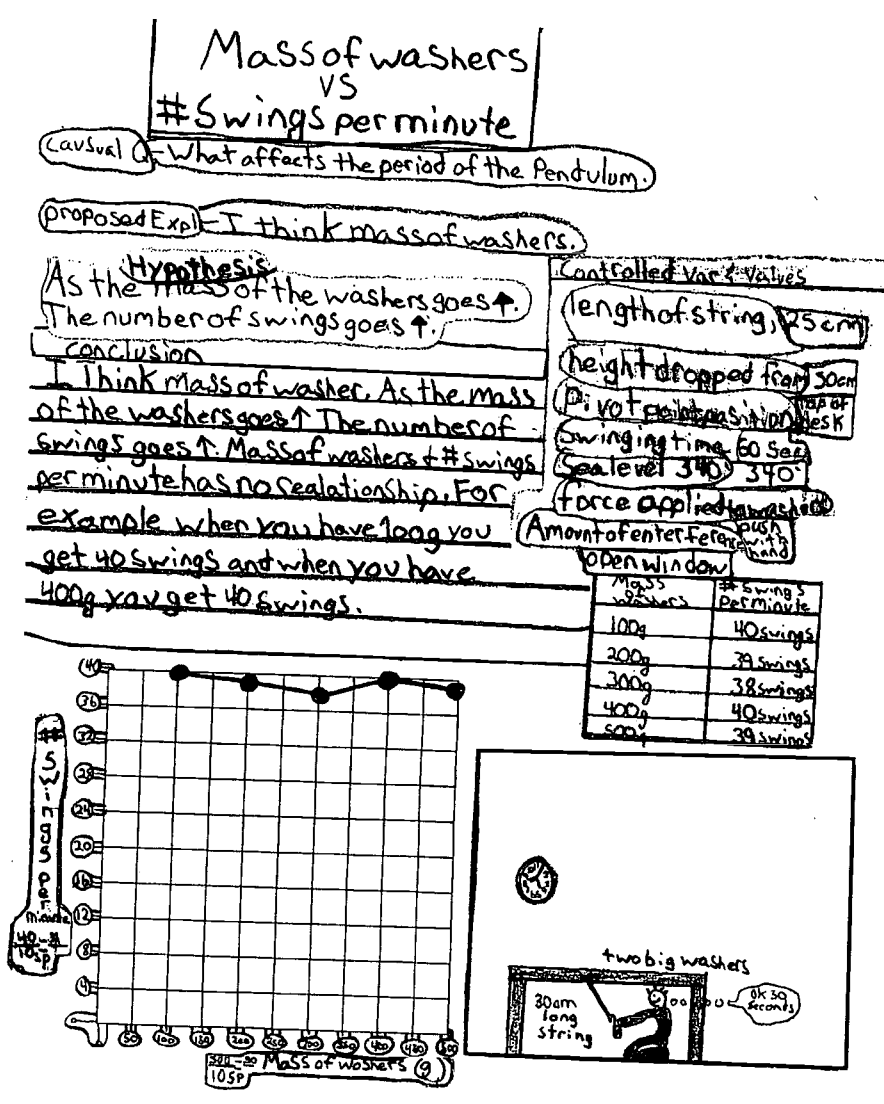 Mass of washers
VS
# Swings per minute
Causual Q - What affects the period of the Pendulum.
proposed Expl - I think mass of washers.
Hypothesis
As the mass of the washers goes ↑.
The number of swings goes ↑.
conclusion
I Think mass of washer. As the mass
of the washers goes ↑ The number of
swings goes ↑. Mass of washers & # swings
per minute has no realationship. For
example when you have 100g you
get 40 swings and when you have
400g you get 40 swings.
Controlled Var & Values
length of string, 25cm
height dropped from 50cm
Pivot point position top of desk
Swinging time 60 Sec
Sea level 340' 340'
force applied to washers push with hand
Amount of enterference
open window
Mass of washers # Swings Per minute
100g 40 swings
200g 39 swings
300g 38 swings
400g 40 swings
500g 39 swings
# Swings per minute
40-0
10sp
40
36
32
28
24
20
16
12
8
4
50 100 150 200 250 300 350 400 450 500
500-50
10sp
Mass of washers (g)
two big washers
30cm
long
string
OK 30
seconds